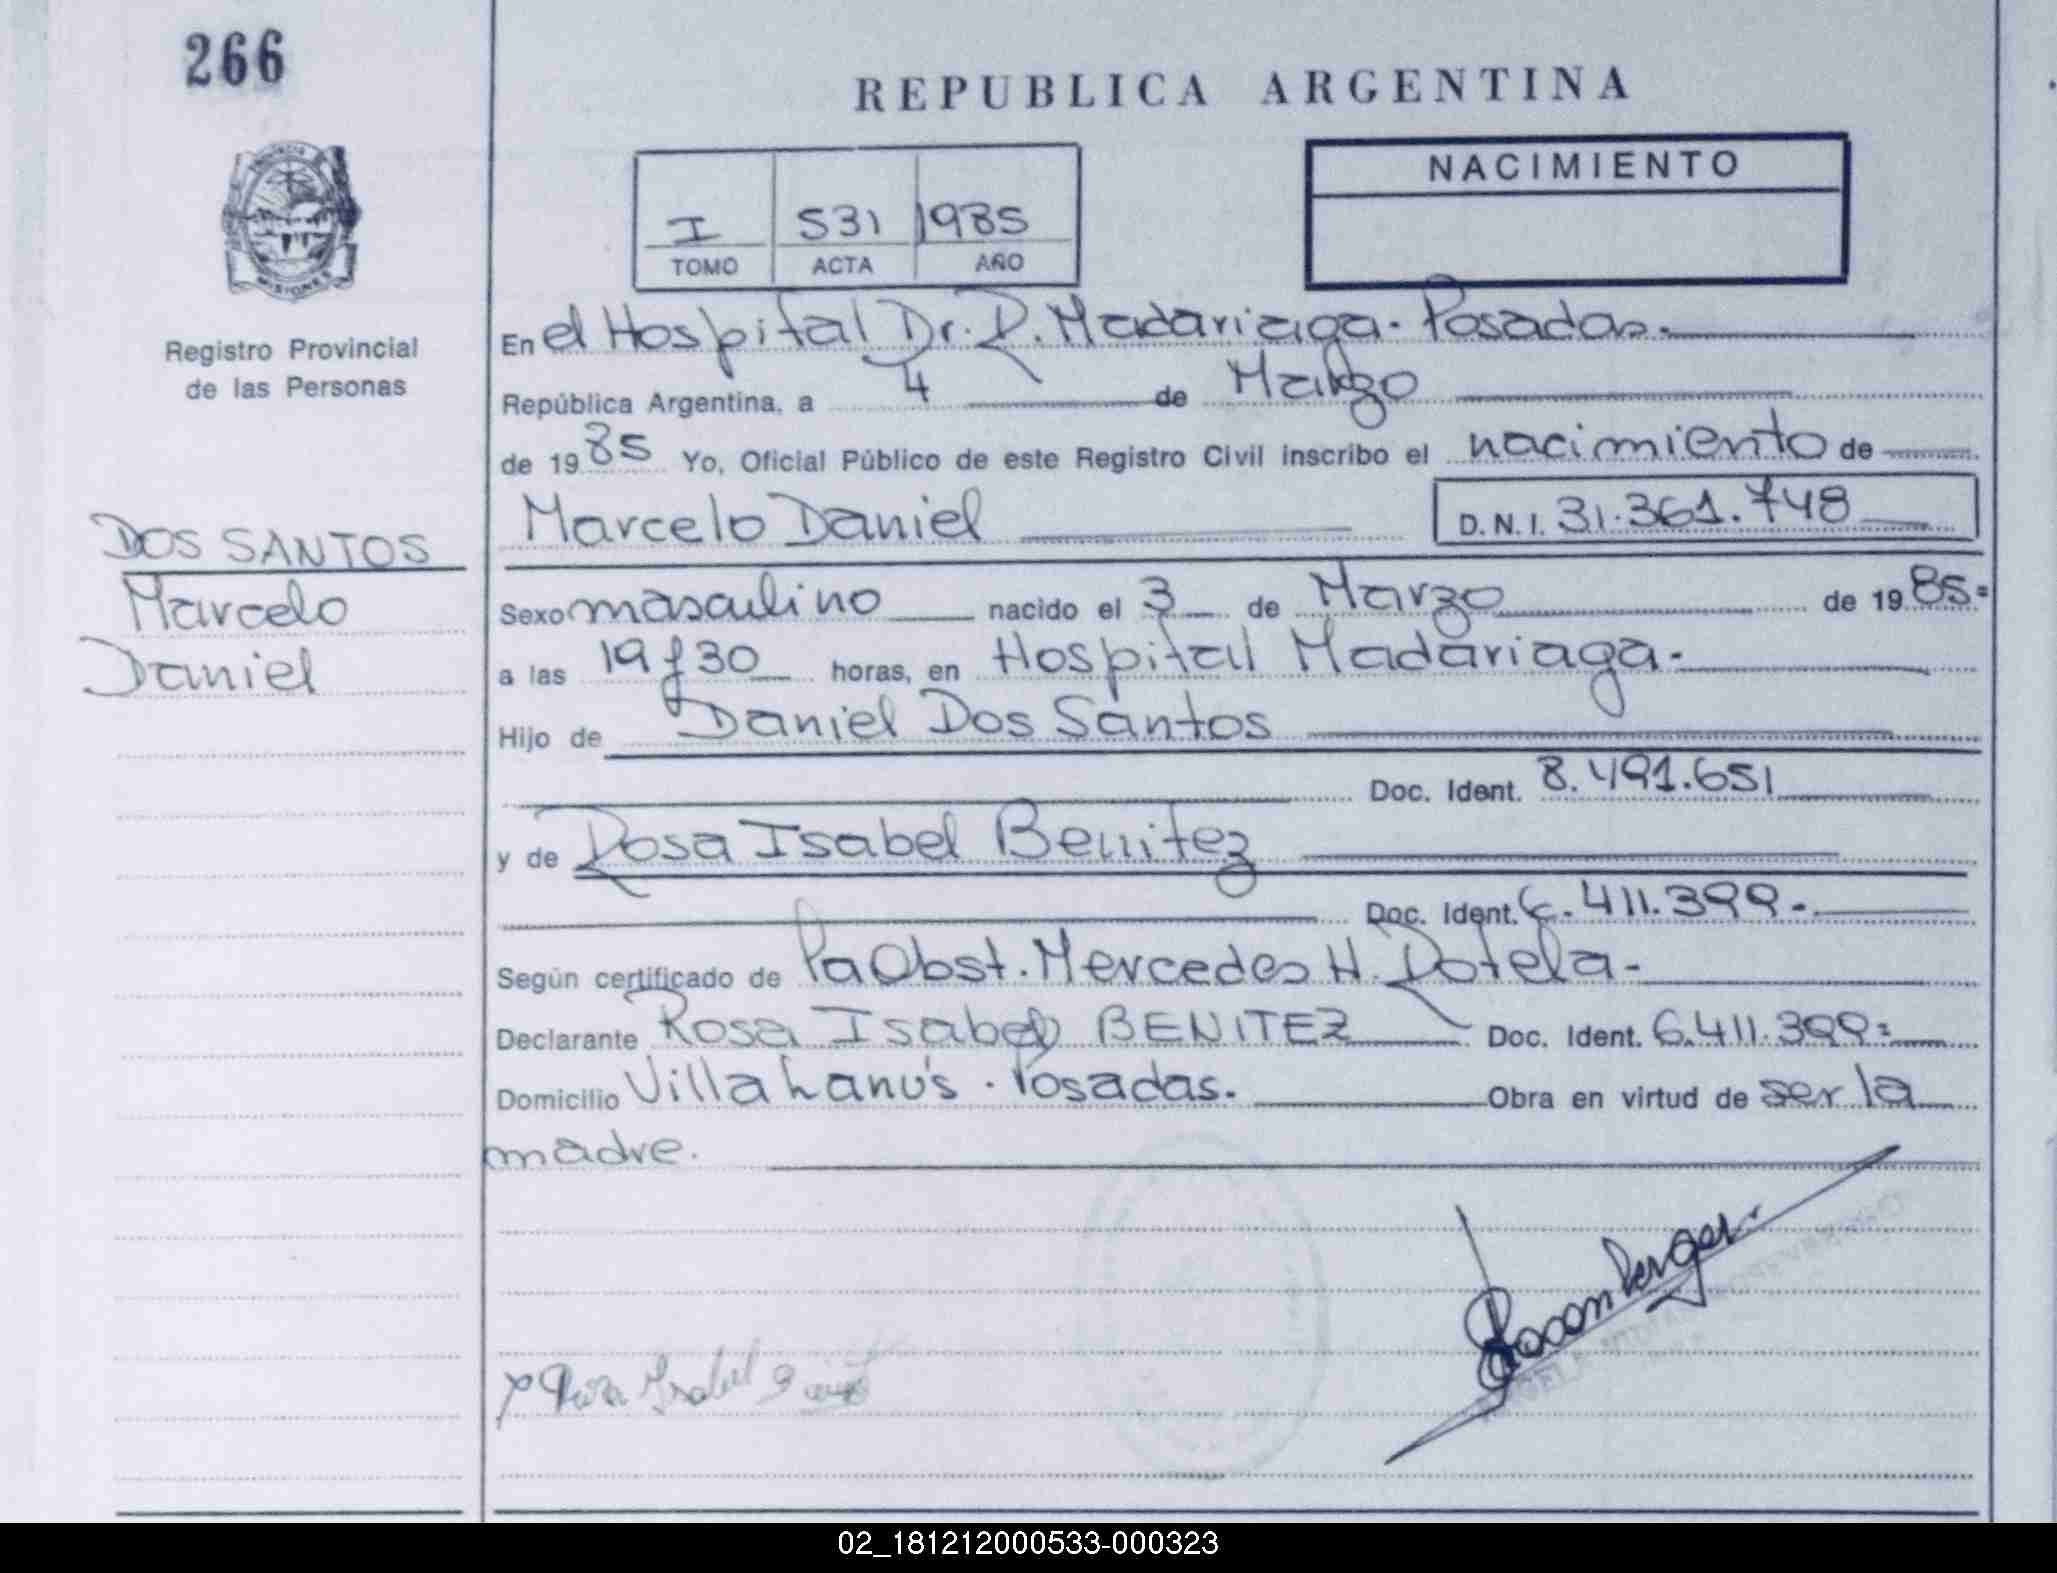 266
REPUBLICA ARGENTINA
NACIMIENTO
I 531 1985
TOMO ACTA AÑO
MISIONES
Registro Provincial
de las Personas
DOS SANTOS
Marcelo
Daniel
En el Hospital Dr. R. Madariaga - Posadas.
República Argentina, a 4 de Marzo
de 1985 Yo, Oficial Público de este Registro Civil inscribo el nacimiento de
Marcelo Daniel D.N.I. 31.361.748
Sexo masculino nacido el 3 de Marzo de 1985=
a las 19 y 30 horas, en Hospital Madariaga-
Hijo de Daniel Dos Santos
Doc. Ident. 8.491.651
y de Rosa Isabel Benitez
Doc. Ident. 6.411.399-
Según certificado de Pa Obst. Mercedes H. Rotela-
Declarante Rosa Isabel BENITEZ Doc. Ident. 6.411.399=
Domicilio Villa Lanús - Posadas. Obra en virtud de ser la
madre.
Rosa Isabel
02_181212000533-000323